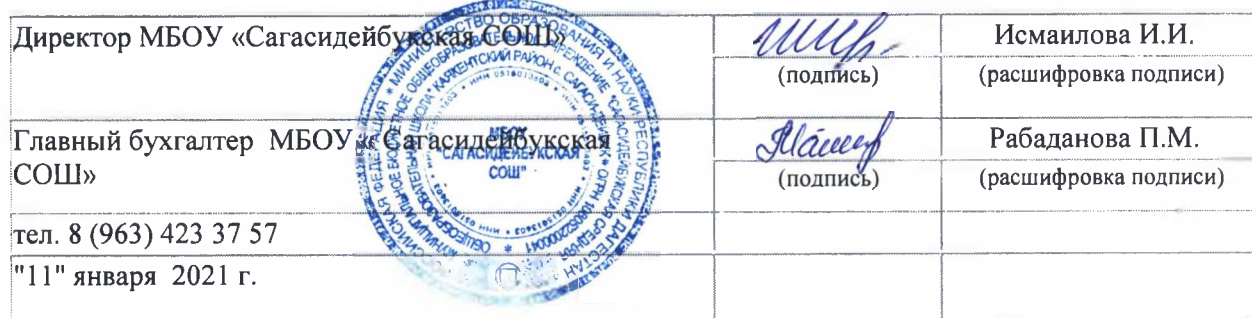 Директор МБОУ «Сагасидейбукская СОШ»
Исмаилова И.И.
(подпись)
(расшифровка подписи)
Главный бухгалтер МБОУ « Сагасидейбукская
СОШ»
Рабаданова П.М.
(подпись)
(расшифровка подписи)
тел. 8 (963) 423 37 57
"11" января 2021 г.
МБОУ
"САГАСИДЕЙБУКСКАЯ
СОШ"